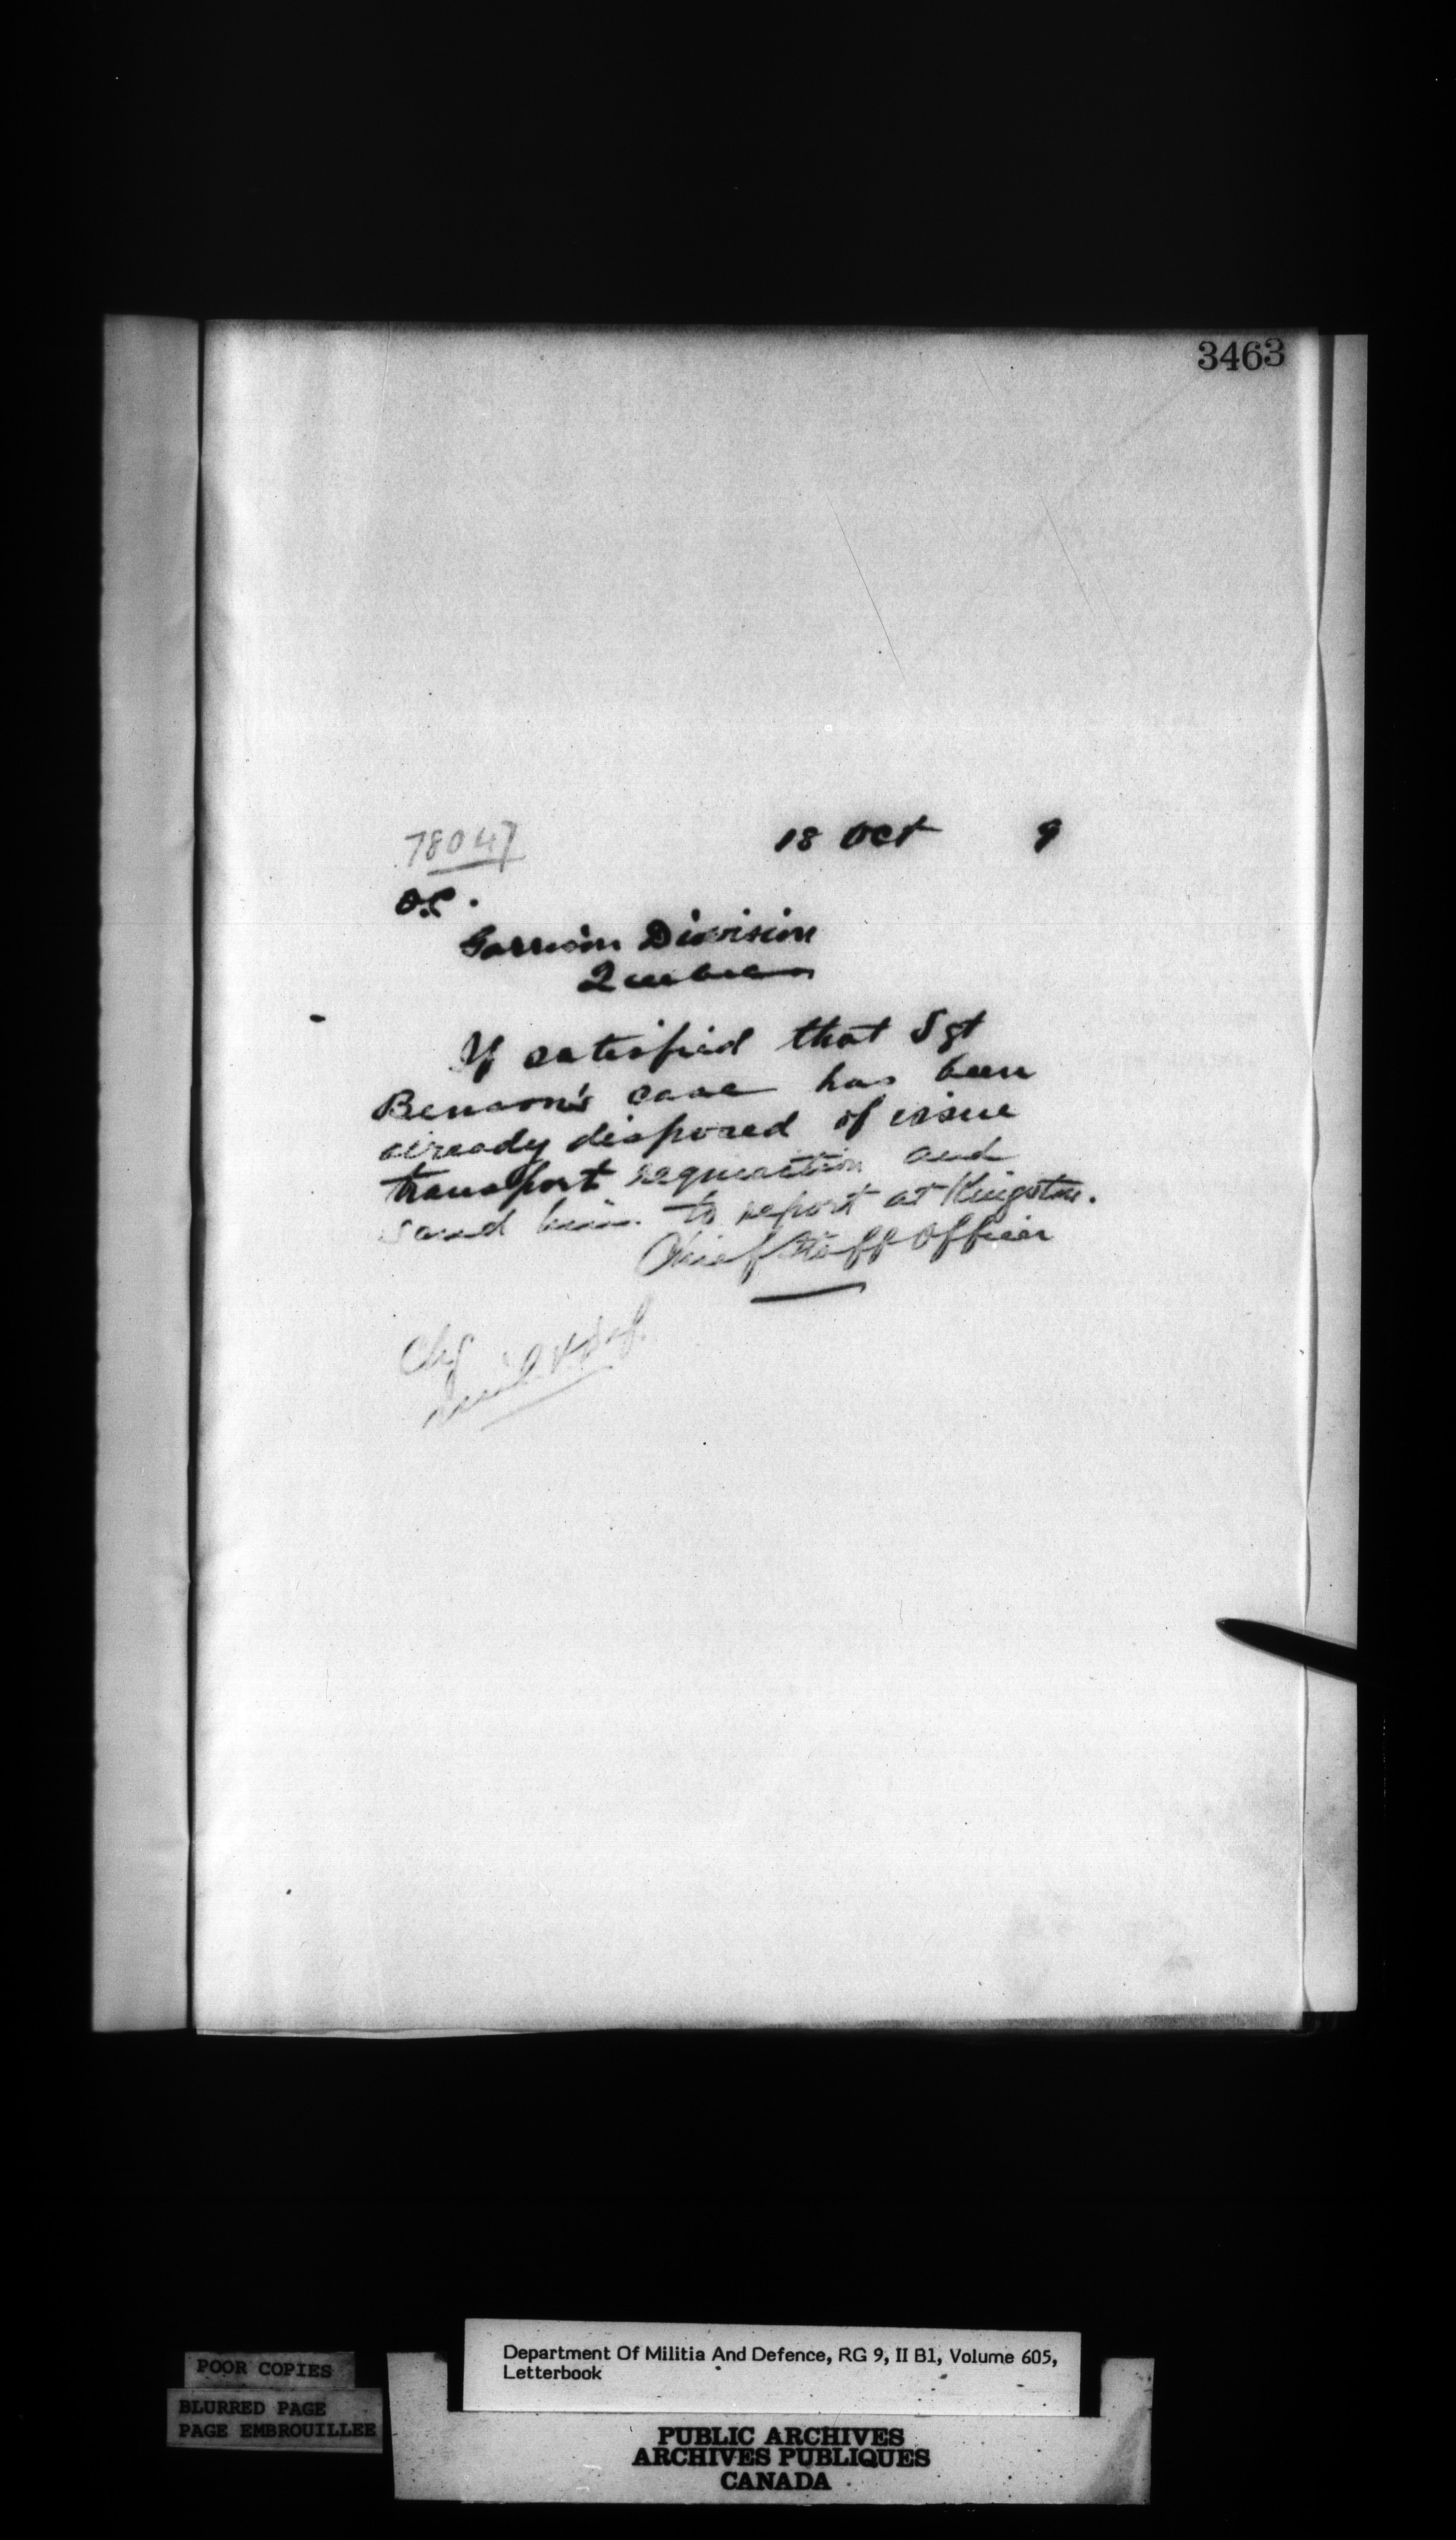 3463
78047
18 Oct 9
O.C.
Garrison Division
Quebec
If satisfied that Sgt
Benson's case has been
already disposed of issue
transport requisition and
send him to report at Kingston.
Chief Staff Officer
Chg
Mil & Def.
Department Of Militia And Defence, RG 9, II B1, Volume 605,
Letterbook
POOR COPIES
BLURRED PAGE
PAGE EMBROUILLEE
PUBLIC ARCHIVES
ARCHIVES PUBLIQUES
CANADA